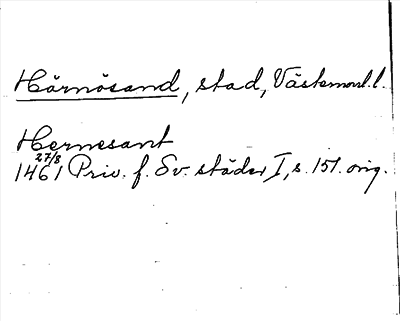 Härnösand, stad, Västernorrl. l.
Hernesant
27/8
1461 Priv. f. Sv. städer I, s. 151. orig.